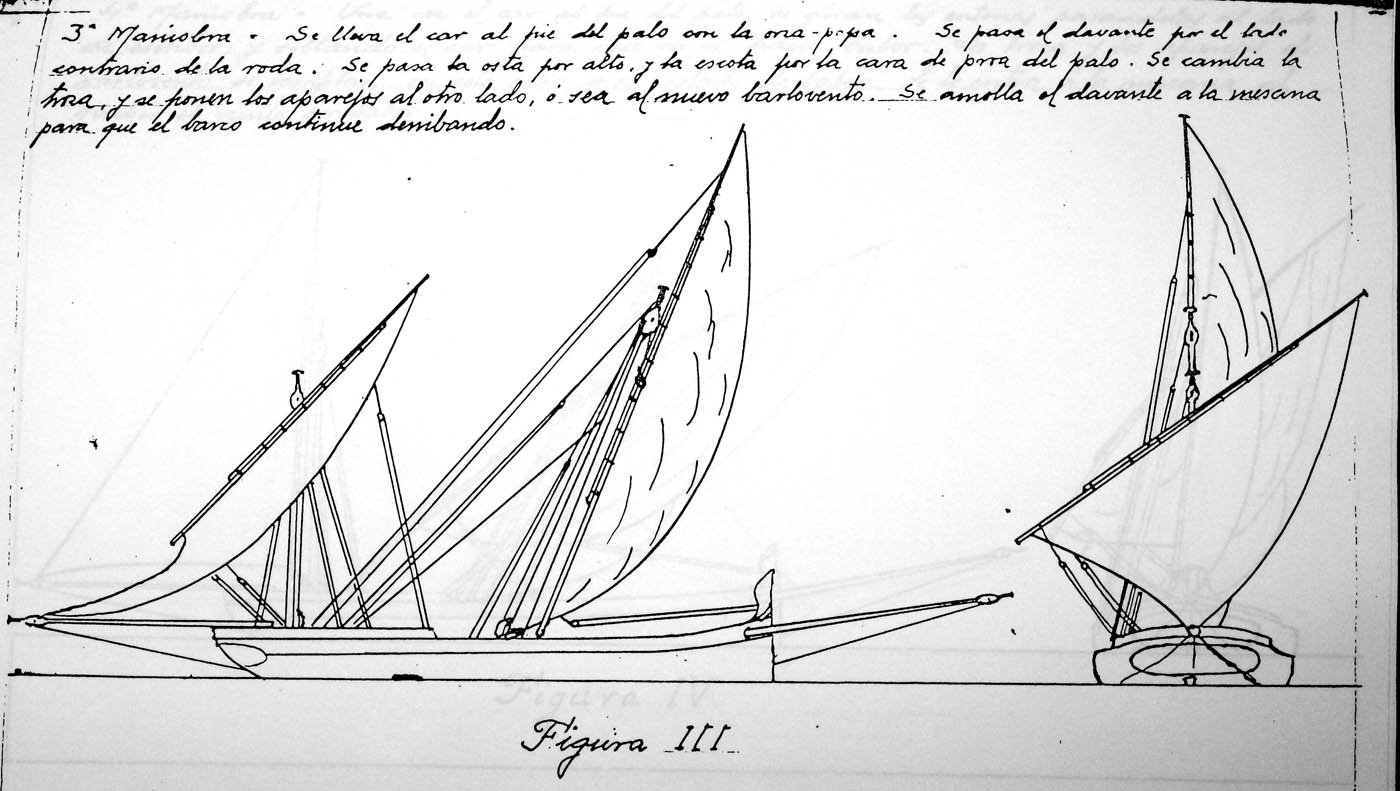 3ª Maniobra. Se lleva el car al pie del palo con la orsa-popa. Se pasa el davante por el lado
contrario de la roda. Se pasa la osta por alto, y la escota por la cara de proa del palo. Se cambia la
troza, y se ponen los aparejos al otro lado, ó sea al nuevo barlovento. Se amolla el davante a la mesana
para que el barco continue derribando.
Figura IV
Figura III